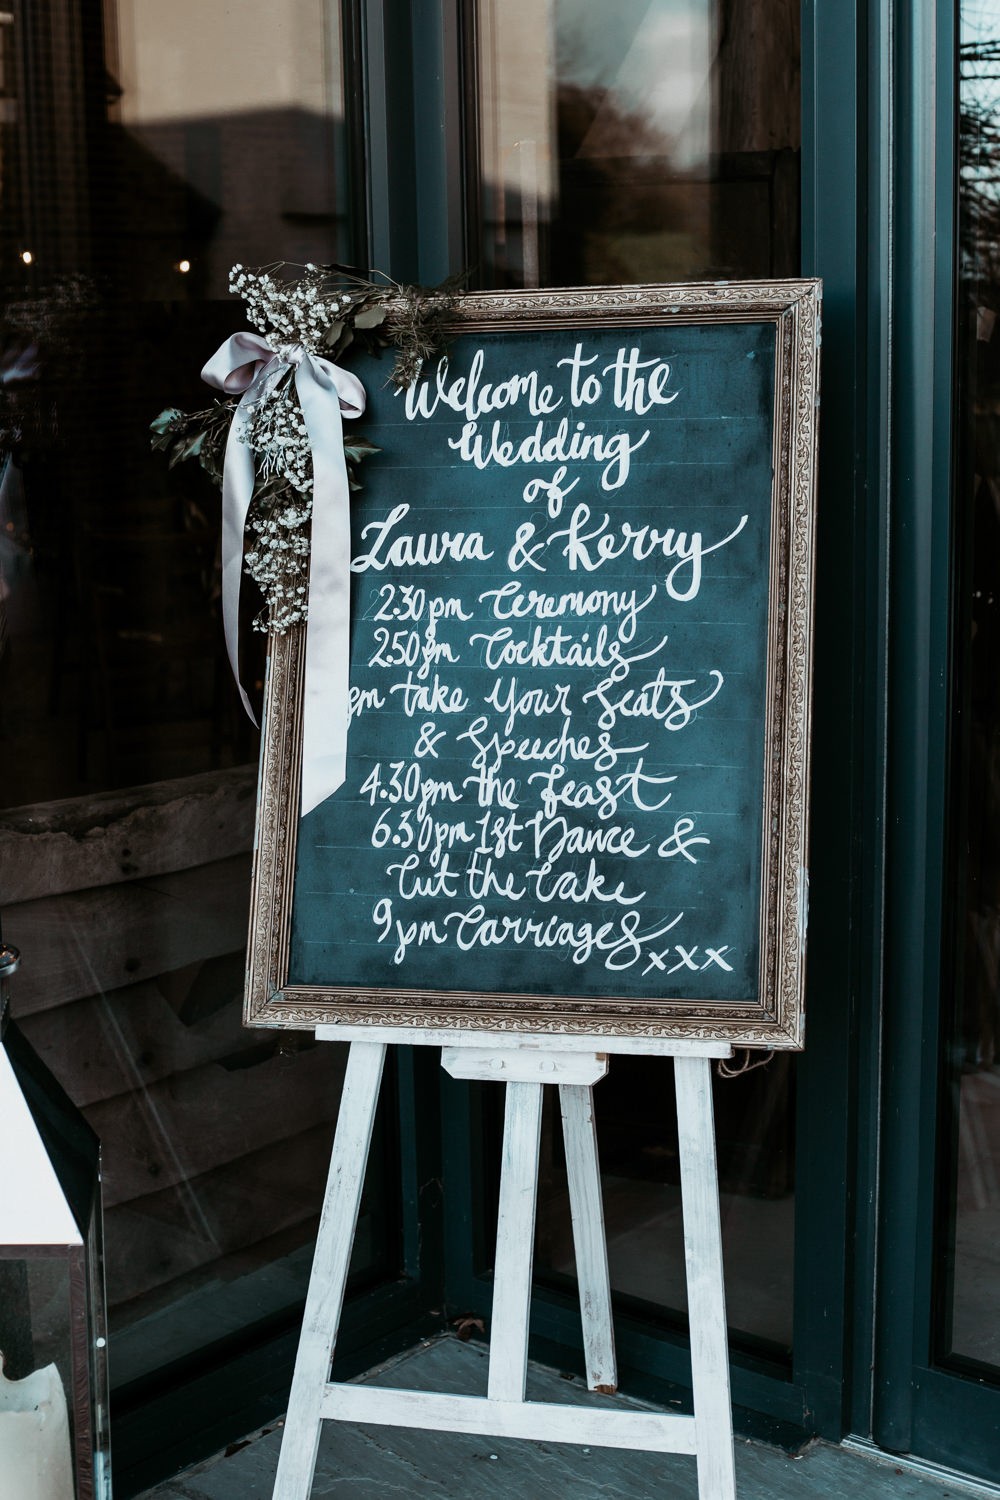 Welcome to the
Wedding
of
Laura & Kerry
2.30pm Ceremony
2.50pm Cocktails
pm take your Seats
& Speeches
4.30pm the Feast
6.30pm 1st Dance &
Cut the Cake
9pm Carriages xxx